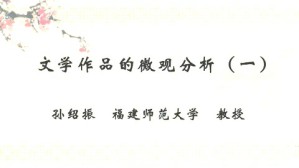 文学作品的微观分析（一）
孙绍振 福建师范大学 教授